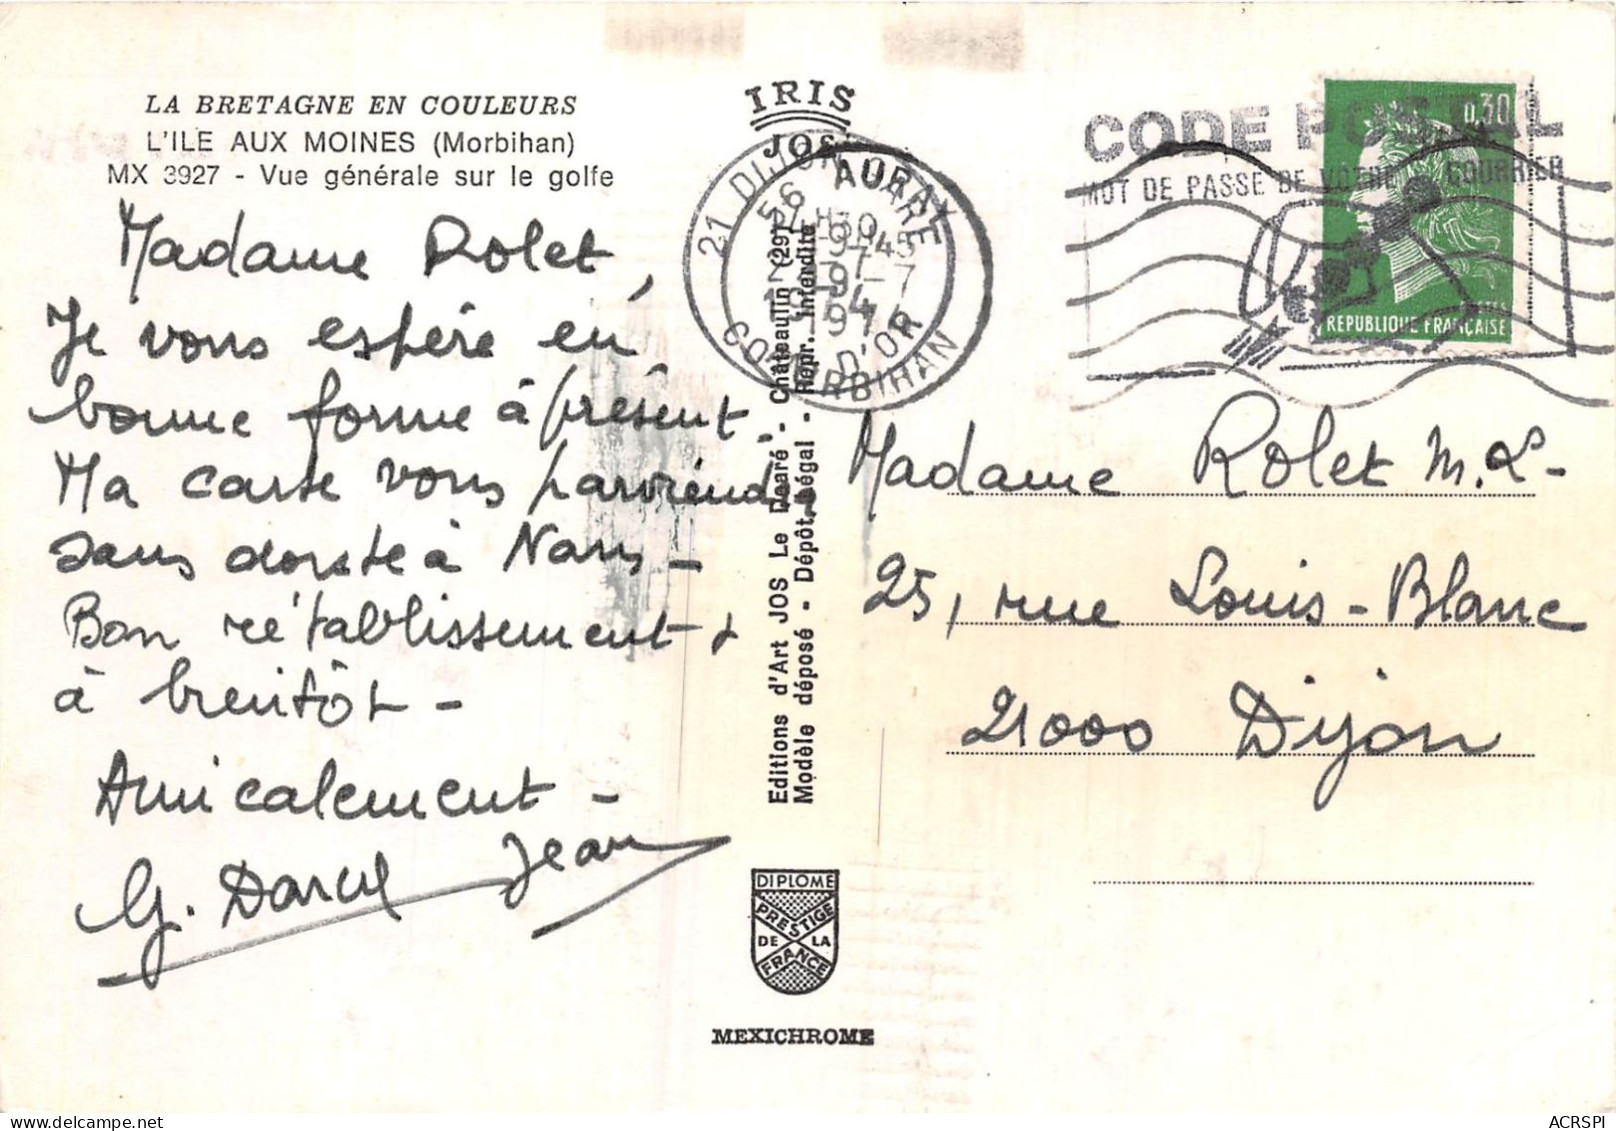 LA BRETAGNE EN COULEURS
L'ILE AUX MOINES (Morbihan)
MX 3927 - Vue générale sur le golfe
Madame Rolet,
Je vous espére en
bonne forme à présent.
Ma carte vous parviendra
sans doute à Nans -
Bon rétablissement &
à bientôt -
Amicalement -
G. Darcel Jean
IRIS
JOS
Editions d'Art JOS Le Doaré - Châteaulin (29)
Modèle déposé - Dépôt légal - Repr. Interdite
21 DIJON GARE
COTE D'OR
56 AURAY
MORBIHAN
CODE POSTAL
MOT DE PASSE DE VOTRE COURRIER
0,30
REPUBLIQUE FRANÇAISE
Madame Rolet M.L-
25, rue Louis-Blanc
21000 Dijon
DIPLOME
PRESTIGE
DE LA
FRANCE
MEXICHROME
ACRSPI